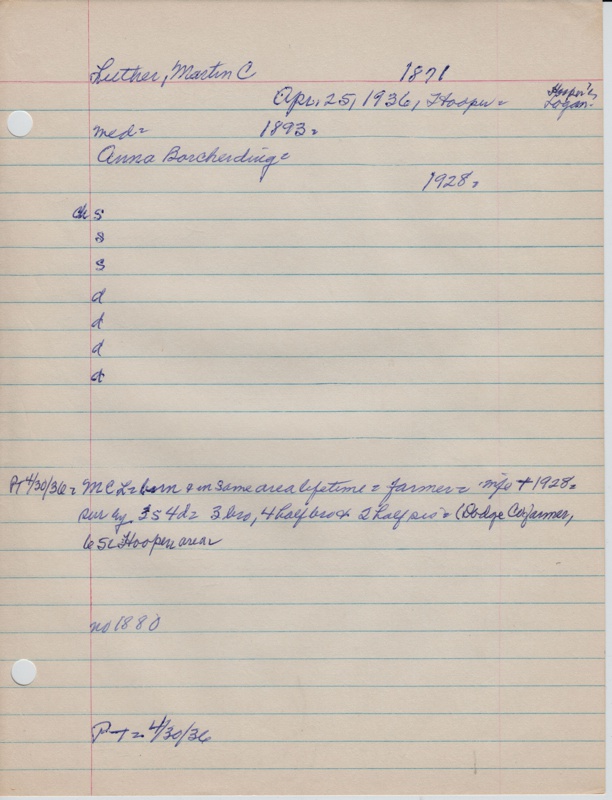 Luther, Martin C 1871
Apr. 25, 1936, Hooper = Hooper &
Logan.
med = 1893 =
Anna Borcherding =
1928 =
ch s
s
s
d
d
d
d
PT 4/30/36 = M C L = born & in same area lifetime = farmer = wife + 1928 =
sur by 3s 4d = 3 bro, 4 half bro & 2 half sis = (Dodge Co farmer,
65 Hooper area
no 1880
PT = 4/30/36